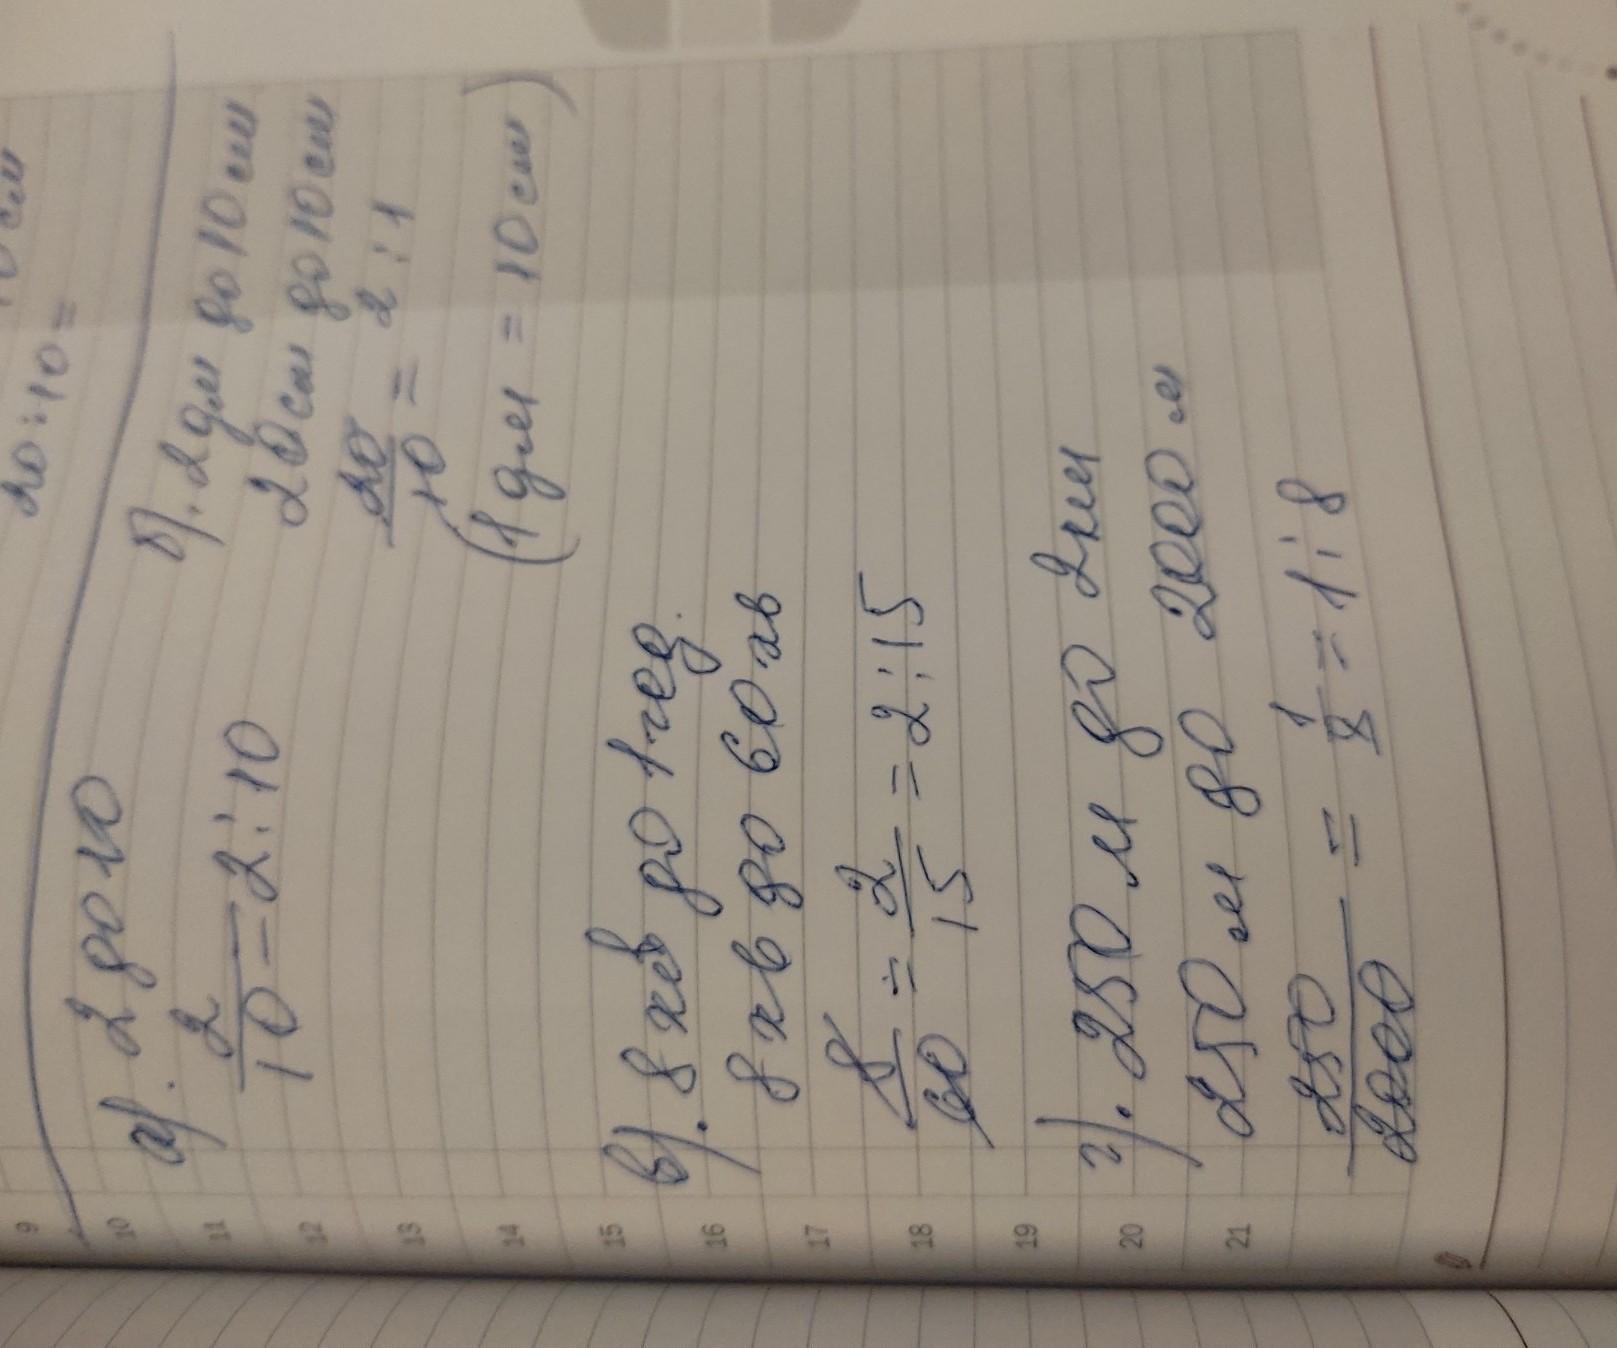 0 см
20:10=
а). 2 до 10
2/10 = 2:10
б). 2 дм до 10 см
20 см до 10 см
20/10 = 2:1
(1 дм = 10 см)
в). 8 хв до 1 год.
8 хв до 60 хв
8/60 = 2/15 = 2:15
г). 250 м до 2 км
250 м до 2000 м
250/2000 = 1/8 = 1:8
9
10
11
12
13
14
15
16
17
18
19
20
21